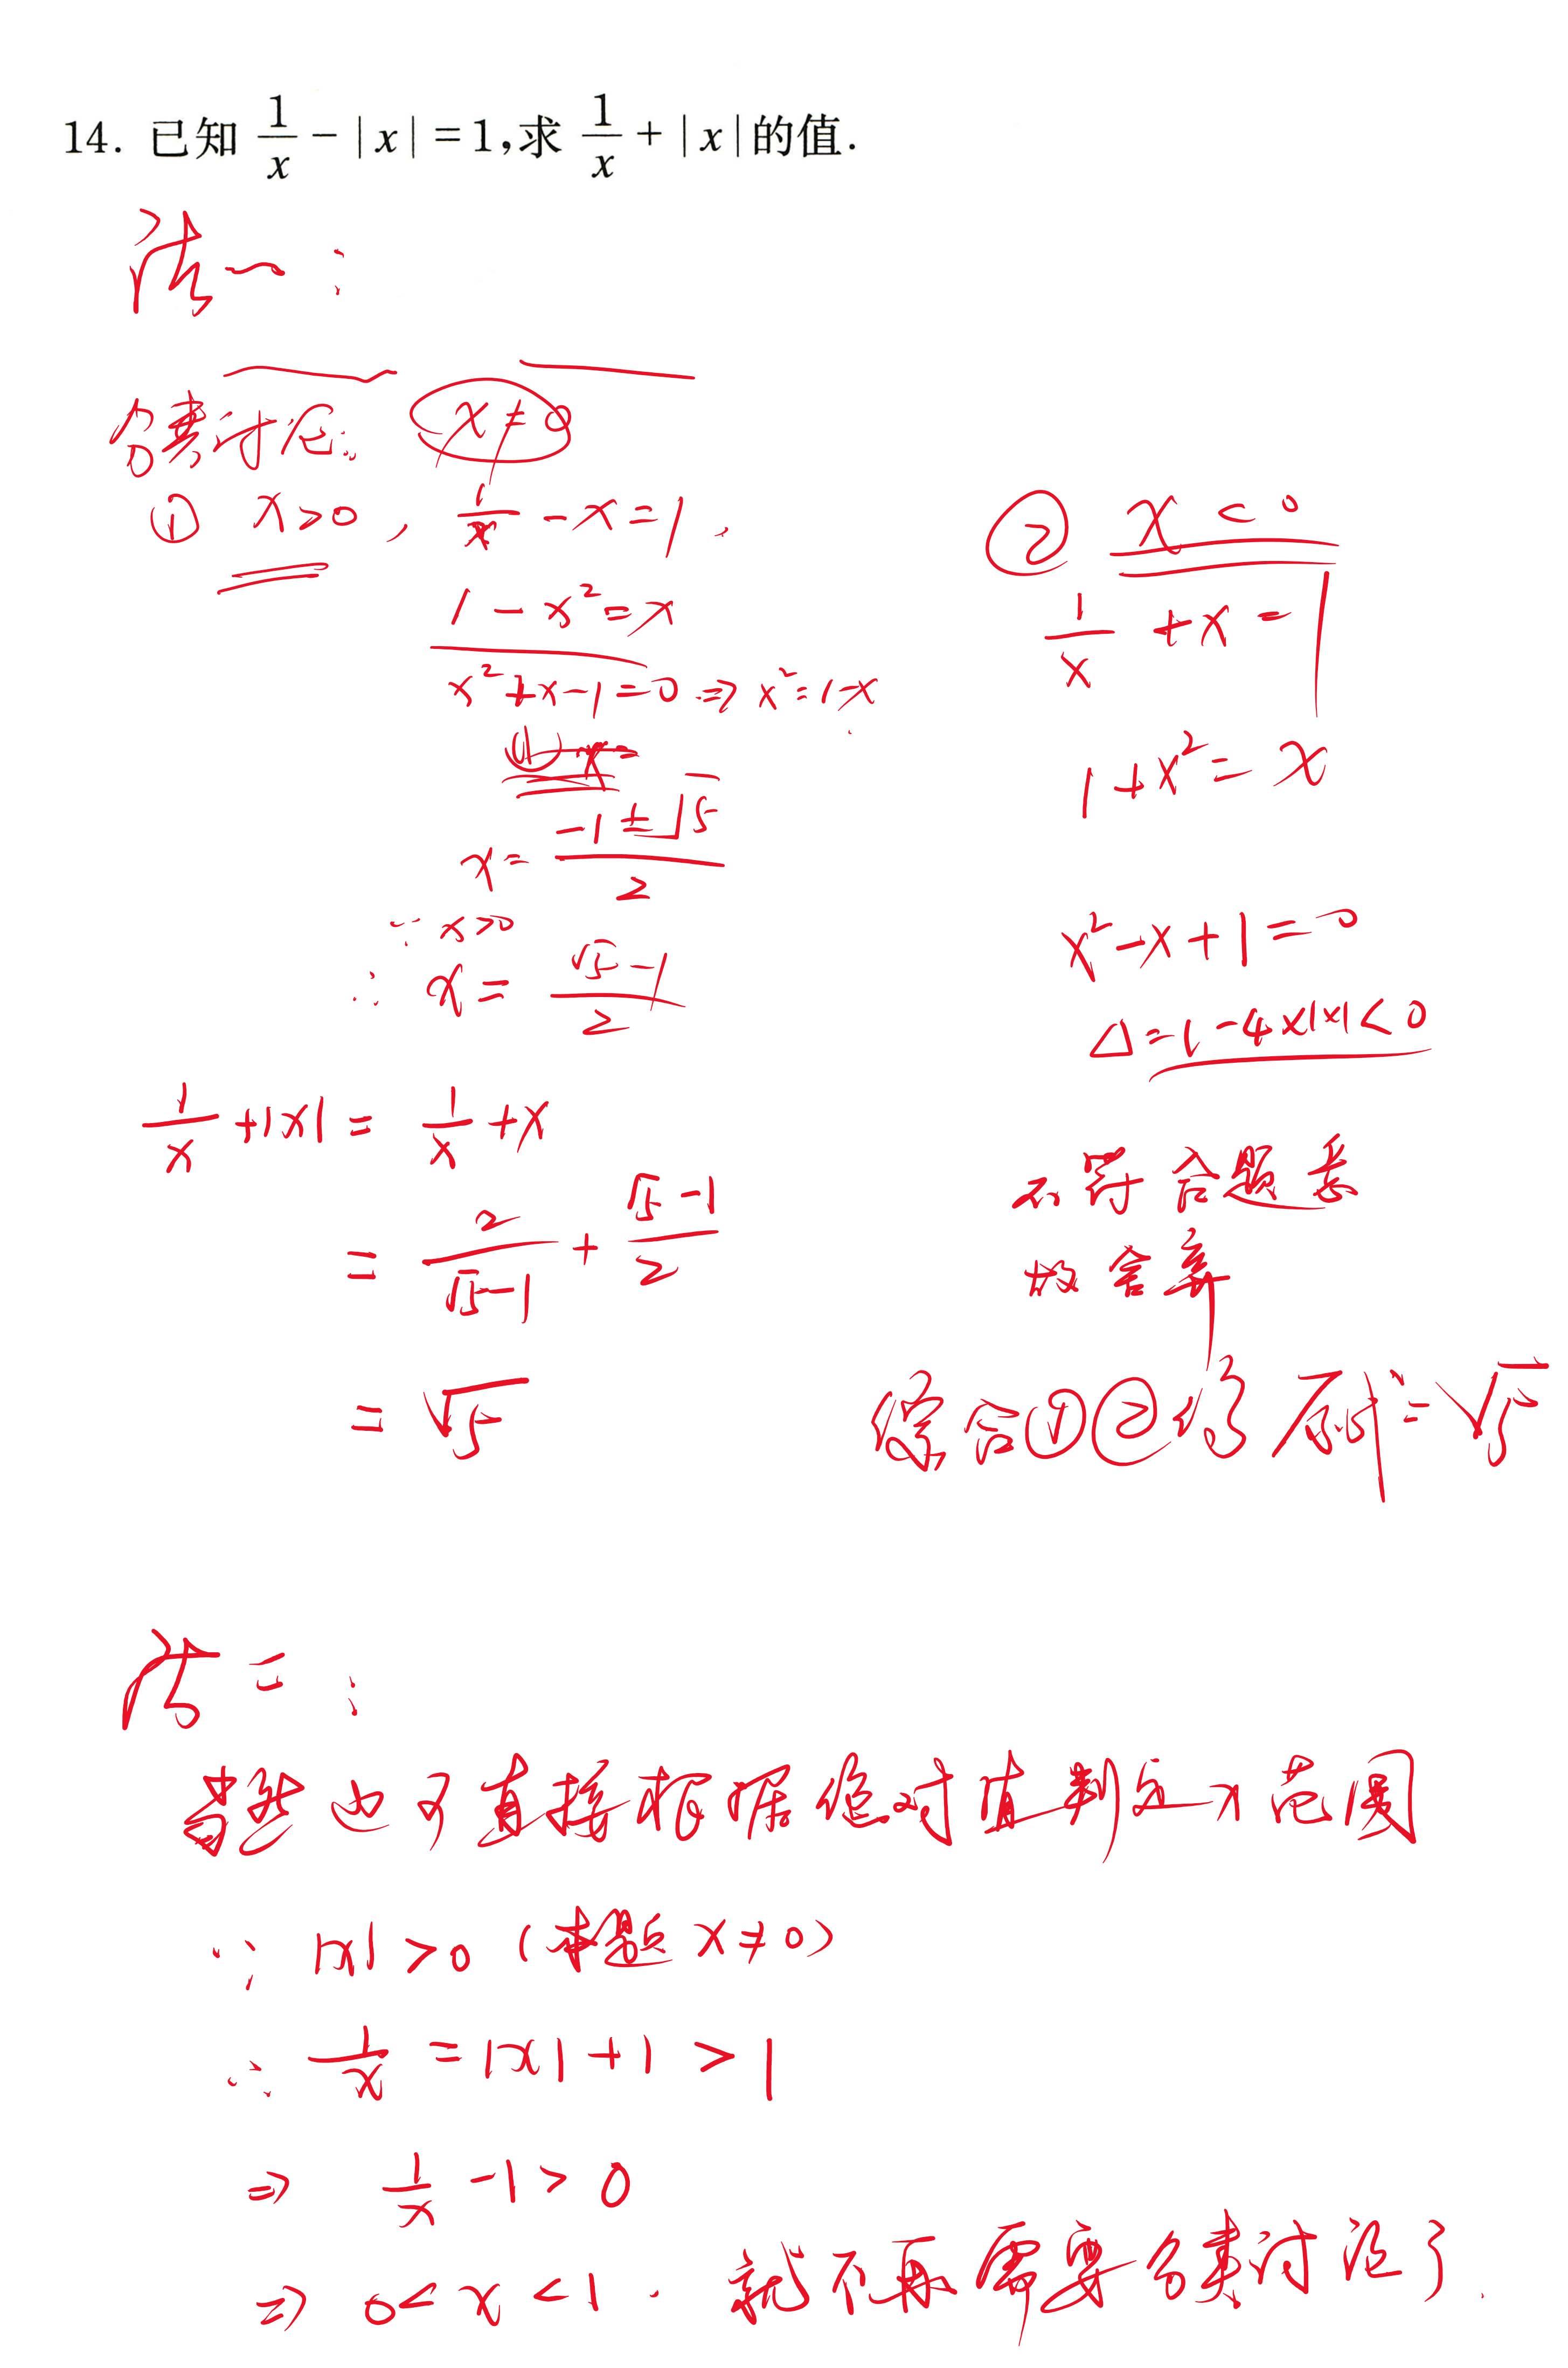 14. 已知 1/x − |x| = 1,求 1/x + |x| 的值.
法一:
分类讨论: x ≠ 0
① x>0, 1/x − x = 1.
1 − x² = x
x² + x − 1 = 0 ⇒ x² = 1 − x
x = (−1 ± √5)/2
∵ x>0
∴ x = (√5 − 1)/2
1/x + |x| = 1/x + x
= 2/(√5 − 1) + (√5 − 1)/2
= √5
② x < 0
1/x + x = 1
1 + x² = x
x² − x + 1 = 0
Δ = 1 − 4×1×1 < 0
不符合题意
故舍弃
综合①②得 原式 = √5
法二:
也可直接根据绝对值判定 x 范围
∵ |x| > 0 (本题 x ≠ 0)
∴ 1/x = |x| + 1 > 1
⇒ 1/x − 1 > 0
⇒ 0 < x < 1. 就不再需要分类讨论了.